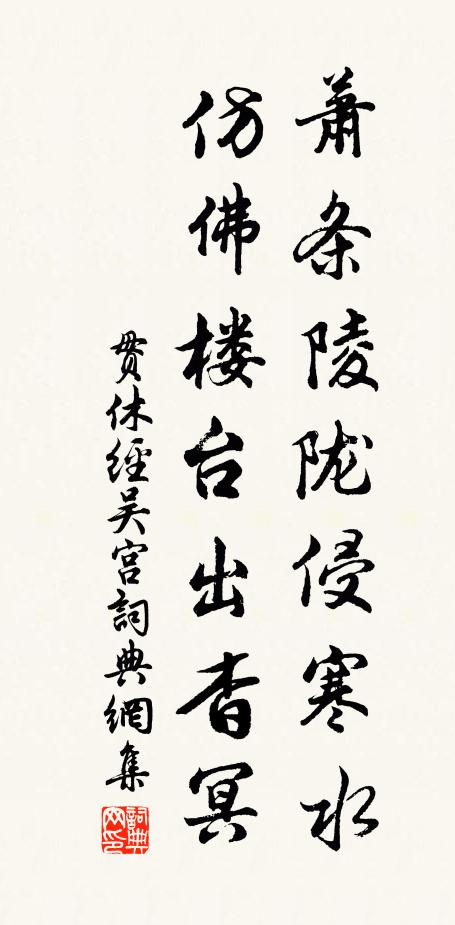 萧条陵陇侵寒水
仿佛楼台出杳冥
贯休經吴宫詞典網集
詞典网印